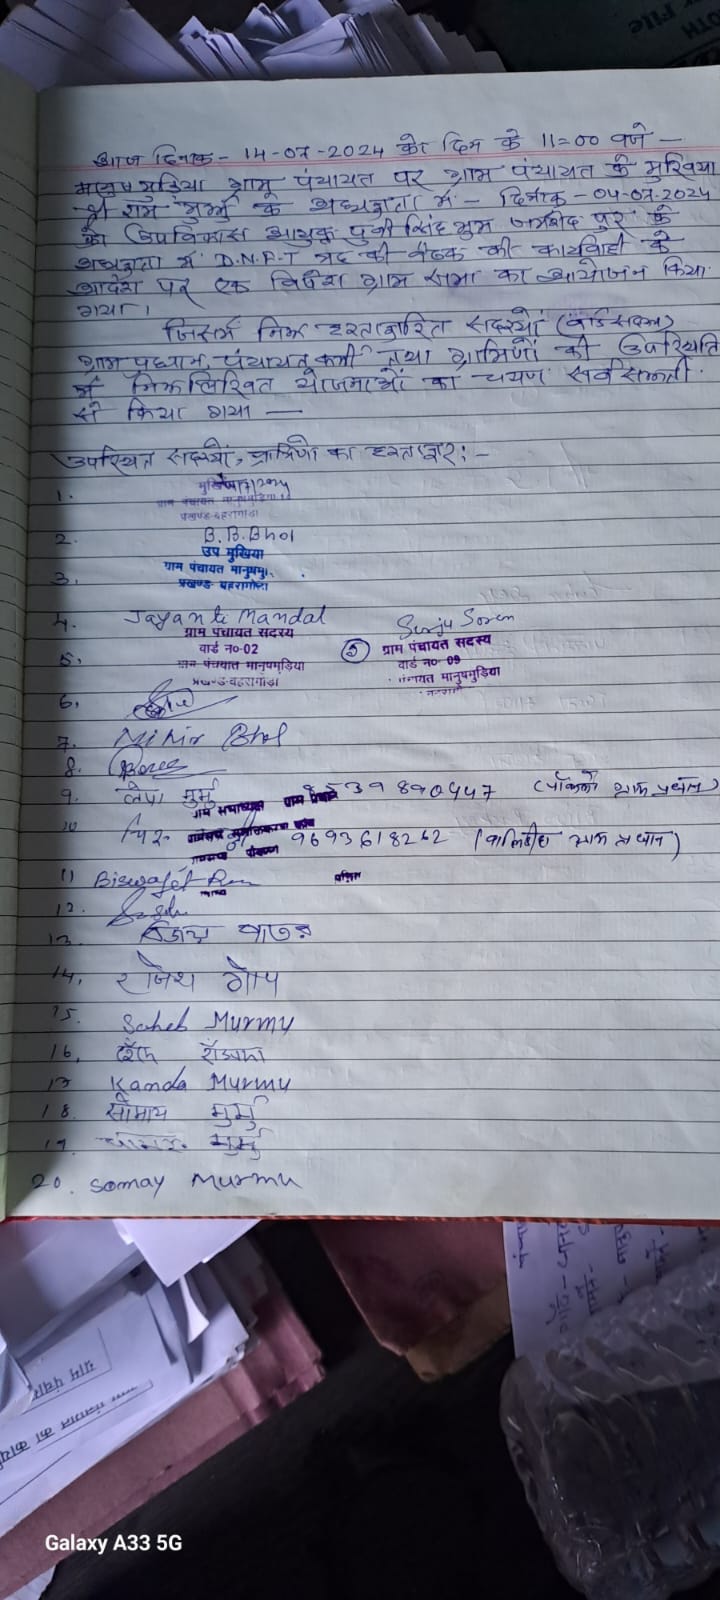 आज दिनांक - 14-07-2024 को दिन के 11=00 बजे -
मानुषमुड़िया ग्राम पंचायत पर ग्राम पंचायत के मुखिया
श्री राम मुर्मू के अध्यक्षता में - दिनांक - 04-07-2024
को उपविकास आयुक्त पुर्वी सिंहभुम जमशेदपुर के
अध्यक्षता में D.M.F.T मद की बैठक की कार्यवाही के
आदेश पर एक विशेष ग्राम सभा का आयोजन किया
गया।
जिसमें निम्न हस्ताक्षरित सदस्यों (वार्ड सदस्य)
ग्राम प्रधान, पंचायत कर्मी तथा ग्रामिणों की उपस्थिति
में निम्नलिखित योजनाओं का चयण सर्वसम्मती
से किया गया —
उपस्थित सदस्यों, ग्रामिणों का हस्ताक्षर:-
1. मुखिया
ग्राम पंचायत मानुषमुड़िया
प्रखण्ड-बहरागोड़ा
2. B.B.Bhol
उप मुखिया
3. ग्राम पंचायत मानुषमु
प्रखण्ड- बहरागोड़ा
4. Jayanti Mandal
ग्राम पंचायत सदस्य
5. वार्ड न०-02
ग्राम पंचायत मानुषमुड़िया
प्रखण्ड-बहरागोड़ा
(5) Surju Soren
ग्राम पंचायत सदस्य
वार्ड न० 09
पंचायत मानुषमुड़िया
6.
7. Mihir Bhol
8.
9. लेपा मुर्मू 539890447 ग्राम प्रधान)
10 9693618262 ग्राम प्रधान)
11 Biswajit
12.
13. पातर
14. राजेश गोप
15. Saheb Murmu
16.
17 Kanda Murmu
18. सोमाय मुर्मू
19. मुर्मू
20. Somay Murmu
Galaxy A33 5G